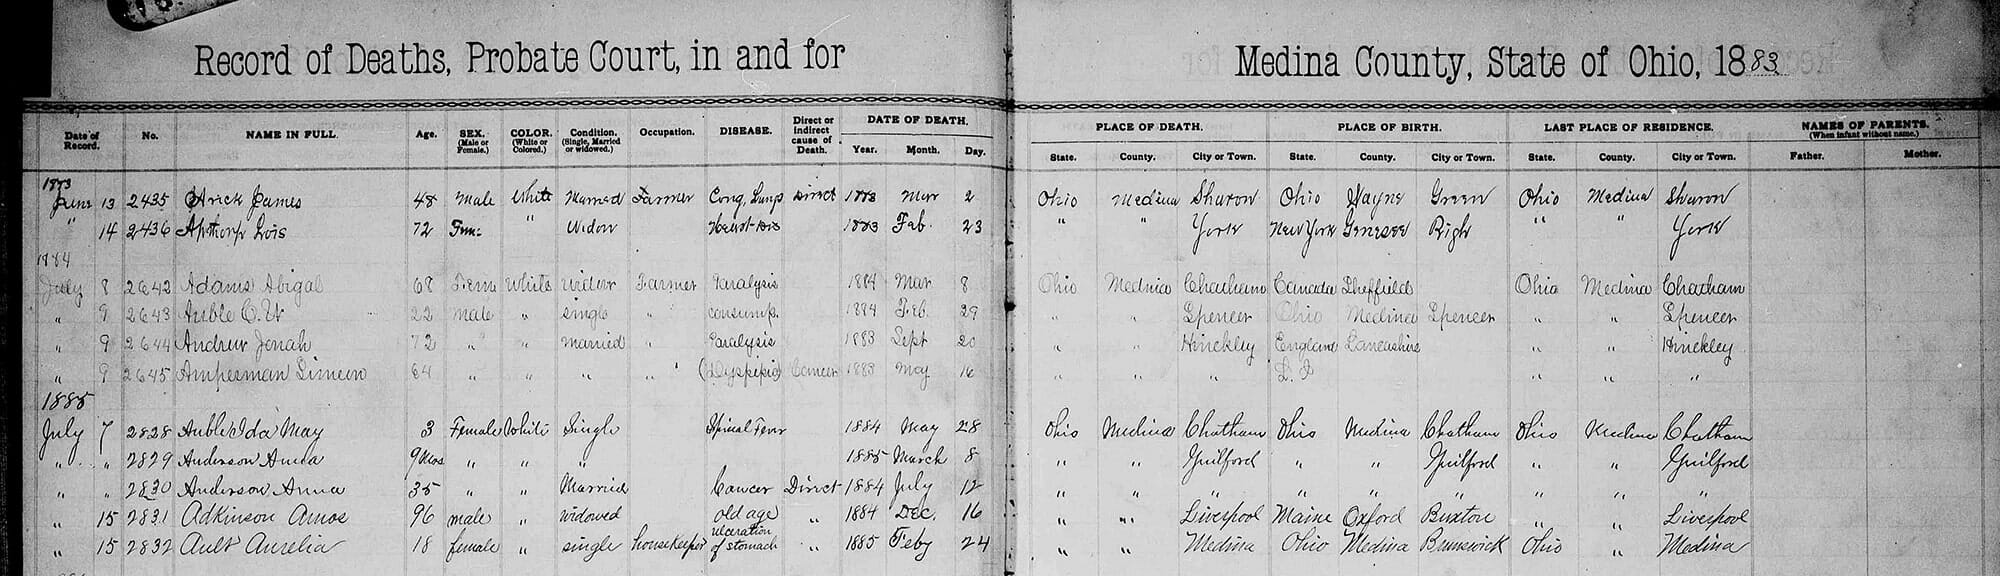 Record of Deaths, Probate Court, in and for Medina County, State of Ohio, 1883
Date of Record. No. NAME IN FULL. Age. SEX. (Male or Female.) COLOR. (White or Colored.) Condition. (Single, Married or widowed.) Occupation. DISEASE. Direct or indirect cause of Death. DATE OF DEATH. Year. Month. Day. PLACE OF DEATH. State. County. City or Town. PLACE OF BIRTH. State. County. City or Town. LAST PLACE OF RESIDENCE. State. County. City or Town. NAMES OF PARENTS. (When infant without name.) Father. Mother.
1883
June 13 2435 James 48 male White Married Farmer Cong. Lungs Direct 1883 Mar 2 Ohio Medina Sharon Ohio Wayne Green Ohio Medina Sharon
" 14 2436 Apthorp Lois 72 Fem: " Widow Heart Dis 1883 Feb. 23 " " York New York Genesee " " York
1884
July 8 2642 Adams Abigal 68 Fem White widow Farmer Paralysis 1884 Mar 8 Ohio Medina Chatham Canada Sheffield Ohio Medina Chatham
" 9 2643 Auble C. W 22 male " single " consump. 1884 Feb. 29 " " Spencer Ohio Medina Spencer " " Spencer
" 9 2644 Andrew Jonah 72 " " married " Paralysis 1883 Sept 20 " " Hinckley England Lancashire " " Hinckley
" 9 2645 Amperman Simeon 64 " " " " (Dyspipia) Cancer 1883 May 16 " " " " " "
1885
July 7 2828 Auble Ida May 3 Female White Single Spinal Fever 1884 May 28 Ohio Medina Chatham Ohio Medina Chatham Ohio Medina Chatham
" " 2829 Anderson Anna 9 Mos " " " 1885 March 8 " " Guilford " " Guilford " " Guilford
" " 2830 Anderson Anna 35 " " Married Cancer Direct 1884 July 12 " " " " " " " " "
" 15 2831 Adkinson Amos 96 male " widowed old age " 1884 Dec. 16 " " Liverpool Maine Oxford Buxton " " Liverpool
" 15 2832 Ault Aurelia 18 female " single housekeeper ulceration of stomach " 1885 Feby 24 " " Medina Ohio Medina Brunswick Ohio " Medina